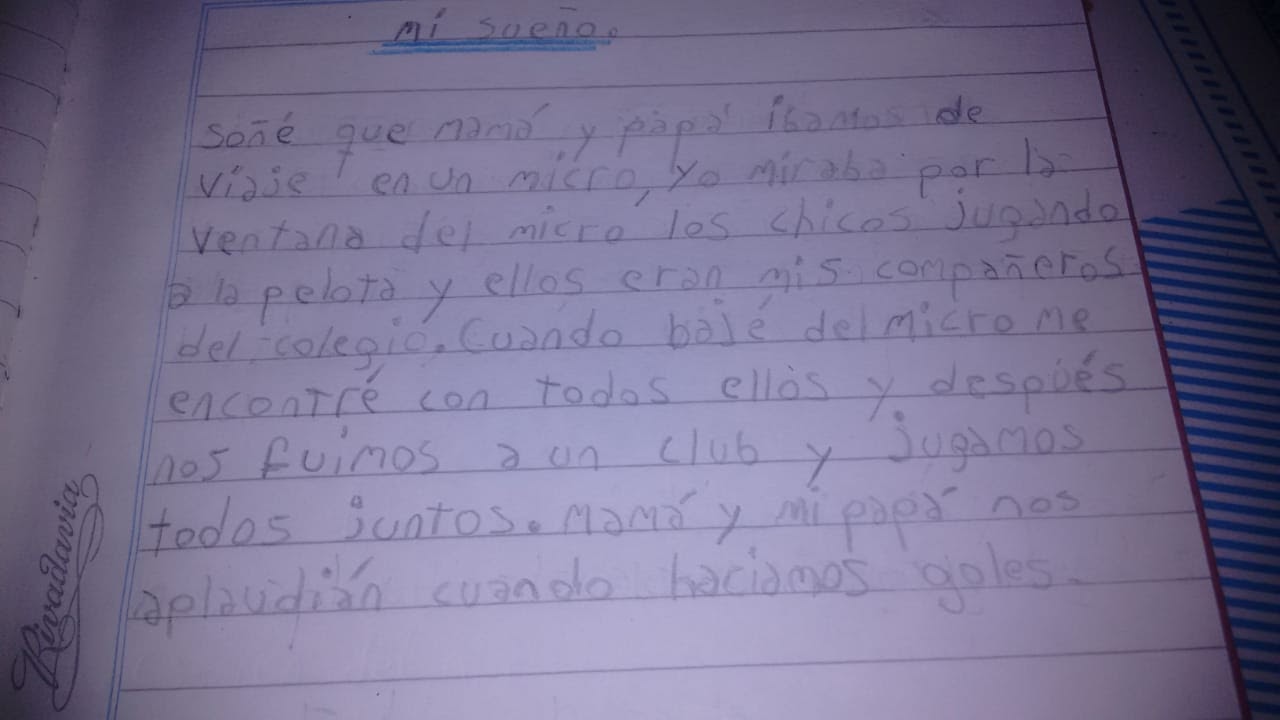 mi sueño.
soñé que mamá y papá íbamos de
viaje en un micro, yo miraba por la
ventana del micro los chicos jugando
a la pelota y ellos eran mis compañeros
del colegio. Cuando bajé del micro me
encontré con todos ellos y después
nos fuimos a un club y jugamos
todos juntos. mamá y mi papá nos
aplaudián cuando haciamos goles.
Rivadavia